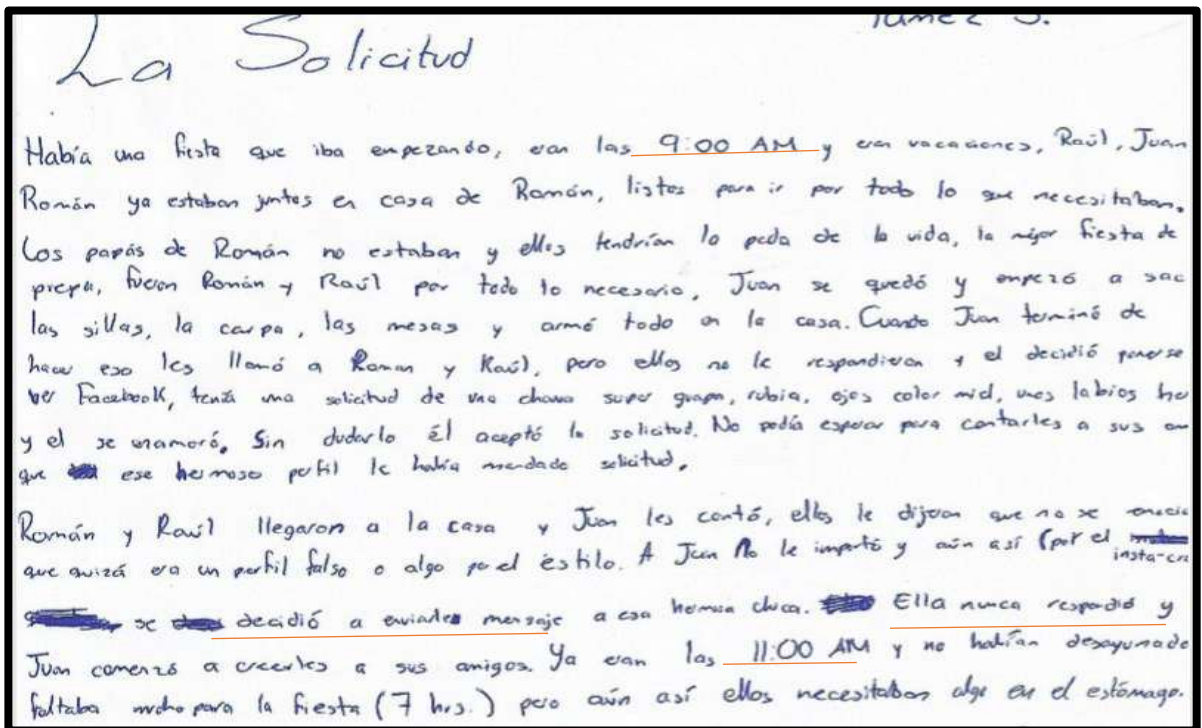 La Solicitud
Había una fiesta que iba empezando, eran las 9:00 AM y eran vacaciones, Raúl, Juan
Román ya estaban juntos en casa de Román, listos para ir por todo lo que necesitaban.
Los papás de Román no estaban y ellos tendrían la peda de la vida, la mejor fiesta de
prepa, fueron Román y Raúl por todo lo necesario, Juan se quedó y empezó a sac
las sillas, la carpa, las mesas y armó todo en la casa. Cuando Juan terminó de
hacer eso les llamó a Roman y Raúl, pero ellos no le respondieron y el decidió ponerse
ver Facebook, tenía una solicitud de una chava super guapa, rubia, ojos color miel, unos labios her
y el se enamoró. Sin dudarlo él aceptó la solicitud. No podía esperar para contarles a sus am
que ese hermoso perfil le había mandado solicitud.
Román y Raúl llegaron a la casa y Juan les contó, ellos le dijeron que no se
que quizá era un perfil falso o algo por el estilo. A Juan No le importó y aún así (por el insta-cr
se decidió a enviarles mensaje a esa hermosa chica. Ella nunca respondió y
Juan comenzó a creerles a sus amigos. Ya eran las 11:00 AM y no habían desayunado
faltaba mucho para la fiesta (7 hrs.) pero aún así ellos necesitaban algo en el estómago.